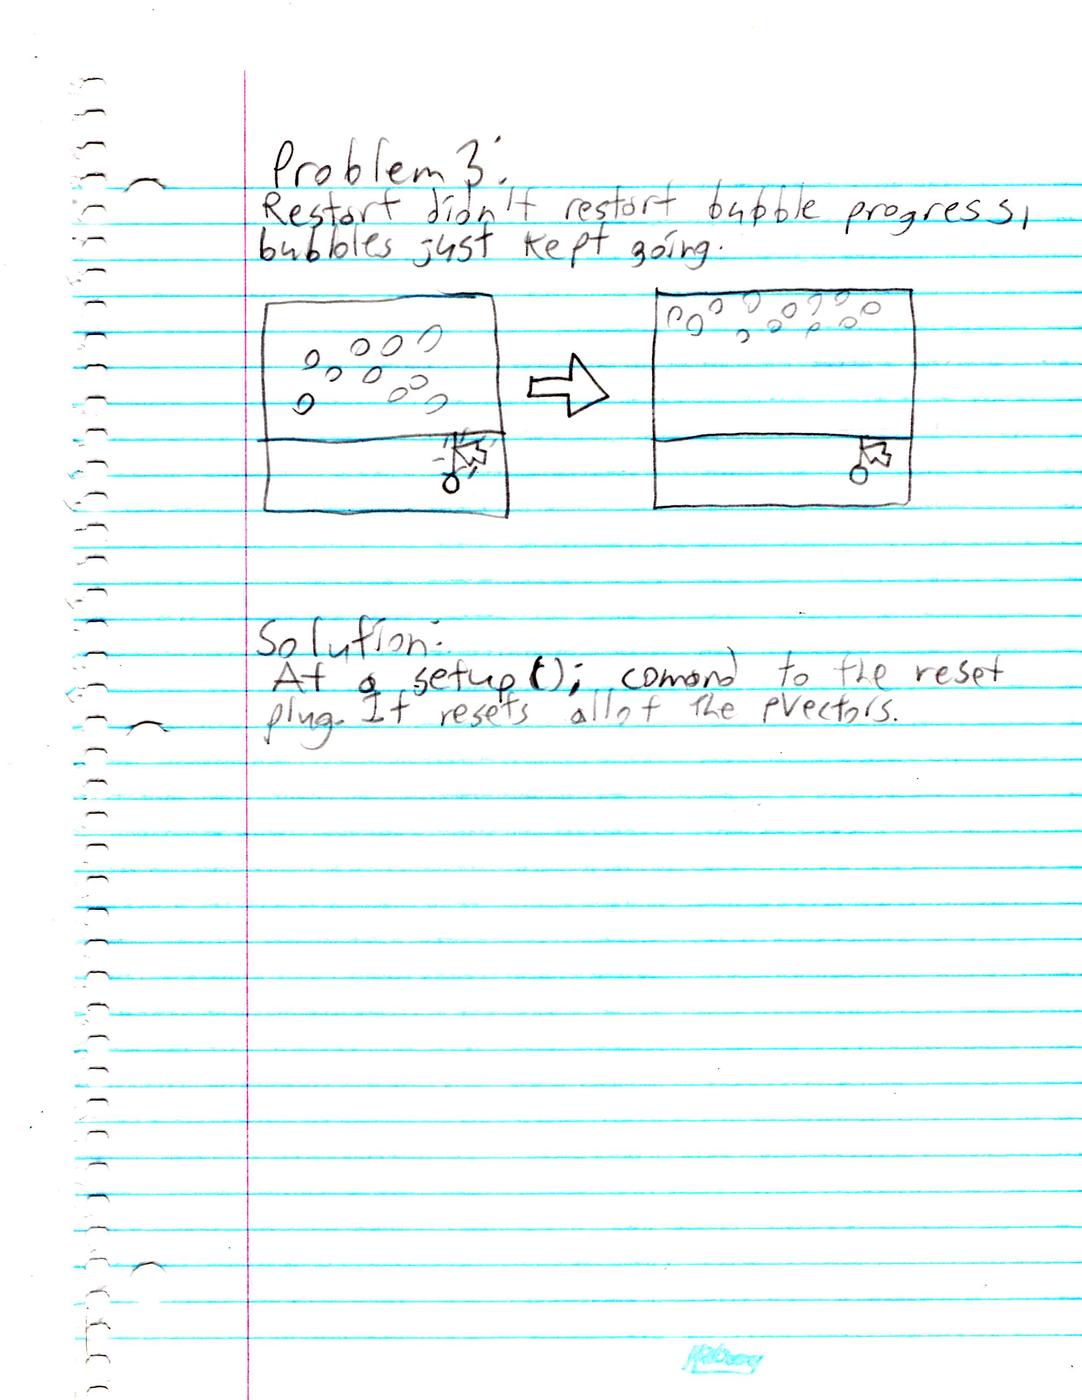 Problem 3:
Restart didn't restart bubble progress,
bubbles just kept going.
Solution:
At a setup(); comand to the reset
plug. It resets all of the pvectors.